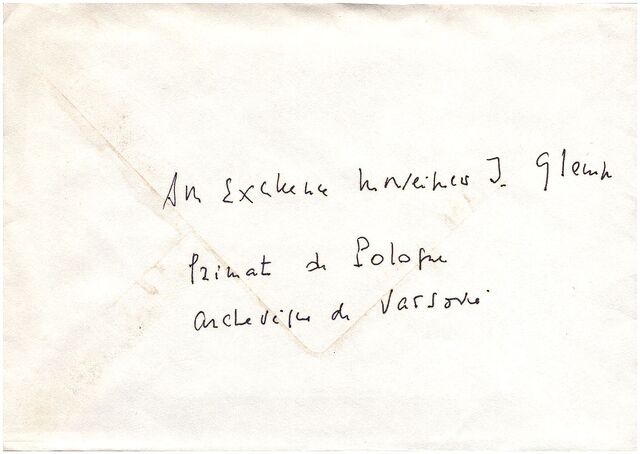 Son Excellence Monseigneur J. Glemp
Primat de Pologne
Archevêque de Varsovie